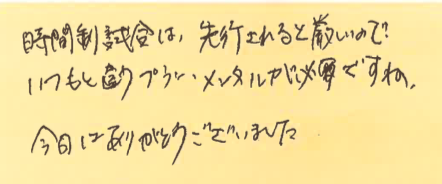 時間制試合は、先行されると厳しいので?
いつもと違うプラン・メンタルが必要ですね。
今日はありがとうございました